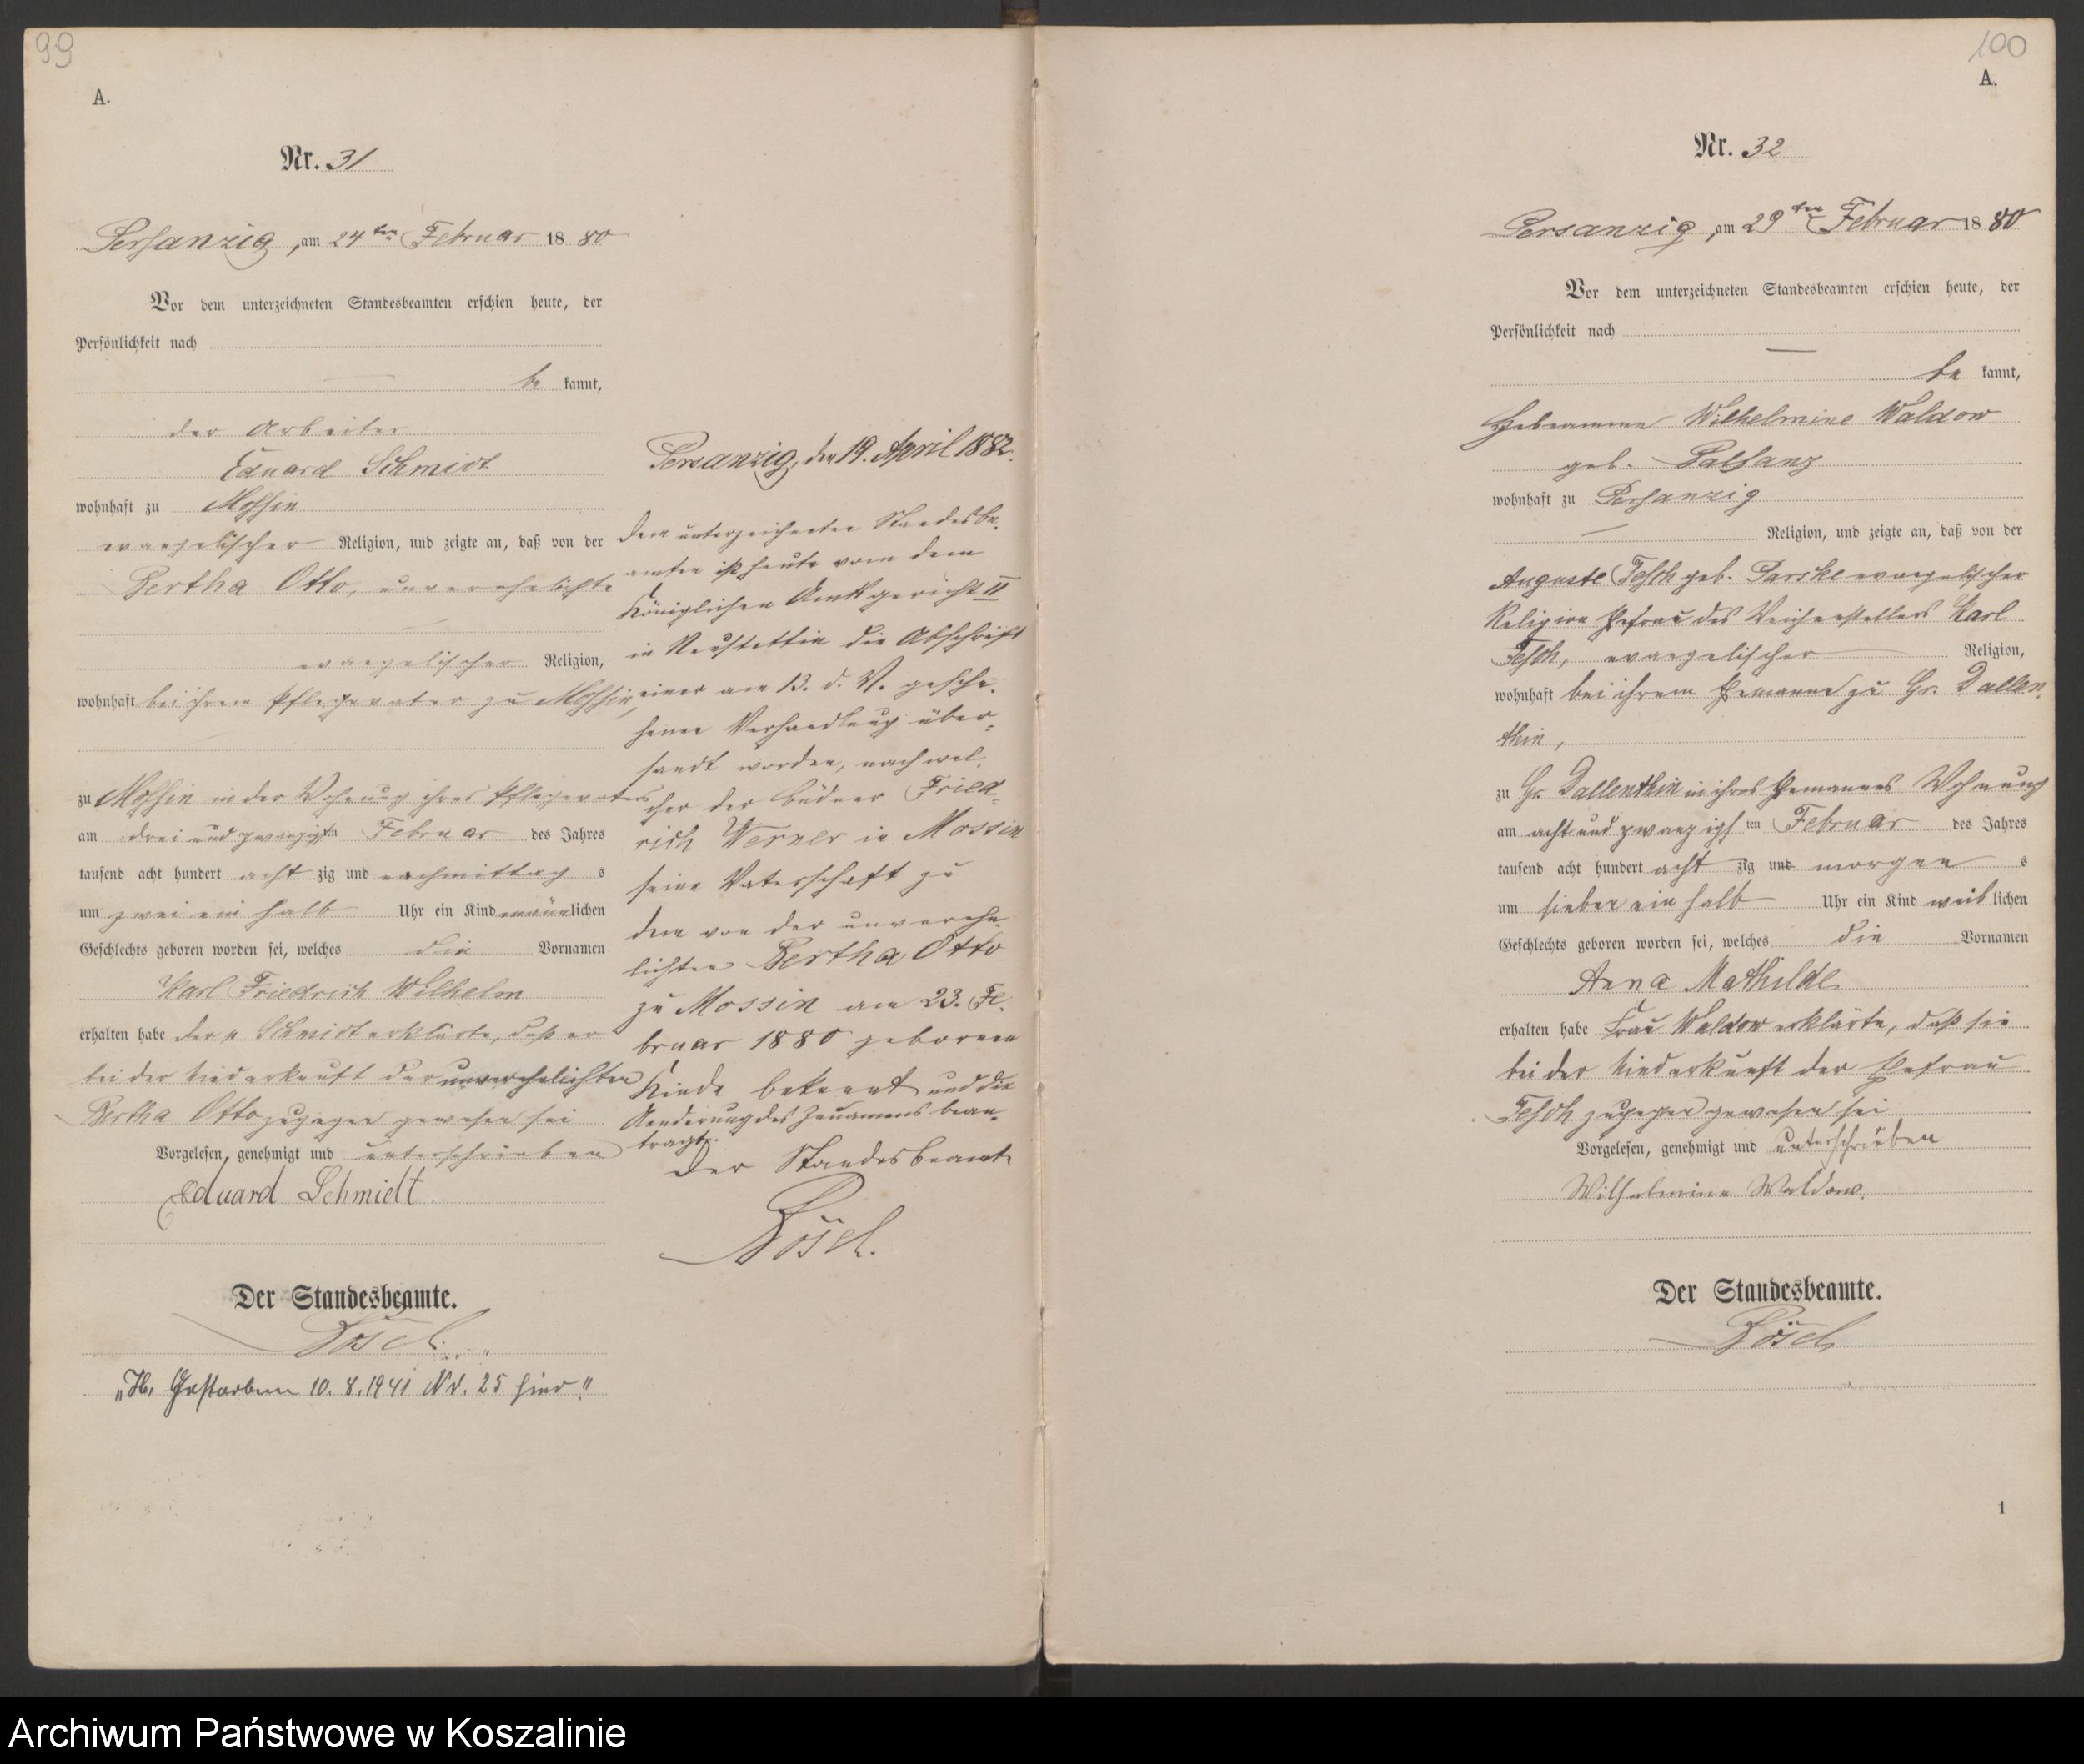 99
A.
Nr. 31
Persanzig, am 24ten Februar 1880
Vor dem unterzeichneten Standesbeamten erschien heute, der
Persönlichkeit nach
— be kannt,
der Arbeiter
Eduard Schmidt
wohnhaft zu Mossin
evangelischer Religion, und zeigte an, daß von der
Bertha Otto, unverehelichte
—
evangelischer Religion,
wohnhaft bei ihrem Pflegevater zu Mossin,
zu Mossin in der Wohnung ihres Pflegevaters
am drei und zwanzigsten Februar des Jahres
tausend acht hundert acht zig und nachmittag s
um zwei ein halb Uhr ein Kind männlichen
Geschlechts geboren worden sei, welches die Vornamen
Karl Friedrich Wilhelm
erhalten habe der p Schmidt erklärte, daß er
bei der Niederkunft der unverehelichten
Bertha Otto zugegen gewesen sei
Vorgelesen, genehmigt und unterschrieben
Eduard Schmidt
Der Standesbeamte.
Bösel.
„H, Gestorben 10.8.1941 Nr. 25 hier"
Persanzig, den 19. April 1882.
Dem unterzeichneten Standesbe-
amten ist heute von dem
Königlichen Amtsgericht II
in Neustettin die Abschrift
einer am 13. d. M. gesche-
henen Verhandlung über-
sandt worden, nach wel-
cher der Büdner Fried-
rich Werner in Mossin
seine Vaterschaft zu
dem von der unverehe-
lichten Bertha Otto
zu Mossin am 23. Fe-
bruar 1880 geborenen
Kinde bekannt und die
Aenderung des Zunamens bean-
tragt.
Der Standesbeamte
Bösel.
100
A.
Nr. 32
Persanzig, am 29ten Februar 1880
Vor dem unterzeichneten Standesbeamten erschien heute, der
Persönlichkeit nach
— be kannt,
Hebeamme Wilhelmine Waldow
geb.
wohnhaft zu Persanzig
— Religion, und zeigte an, daß von der
Auguste Tesch geb. Parske evangelischer
Religion Ehefrau des Weichenstellers Karl
Tesch, evangelischer Religion,
wohnhaft bei ihrem Ehemanne zu Gr. Dallen-
thin,
zu Gr. Dallenthin in ihres Ehemannes Wohnung
am acht und zwanzigs ten Februar des Jahres
tausend acht hundert acht zig und morgen s
um sieben ein halb Uhr ein Kind weib lichen
Geschlechts geboren worden sei, welches die Vornamen
Anna Mathilde
erhalten habe Frau Waldow erklärte, daß sie
bei der Niederkunft der Ehefrau
Tesch zugegen gewesen sei
Vorgelesen, genehmigt und unterschrieben
Wilhelmine Waldow.
Der Standesbeamte.
Bösel
1
Archiwum Państwowe w Koszalinie